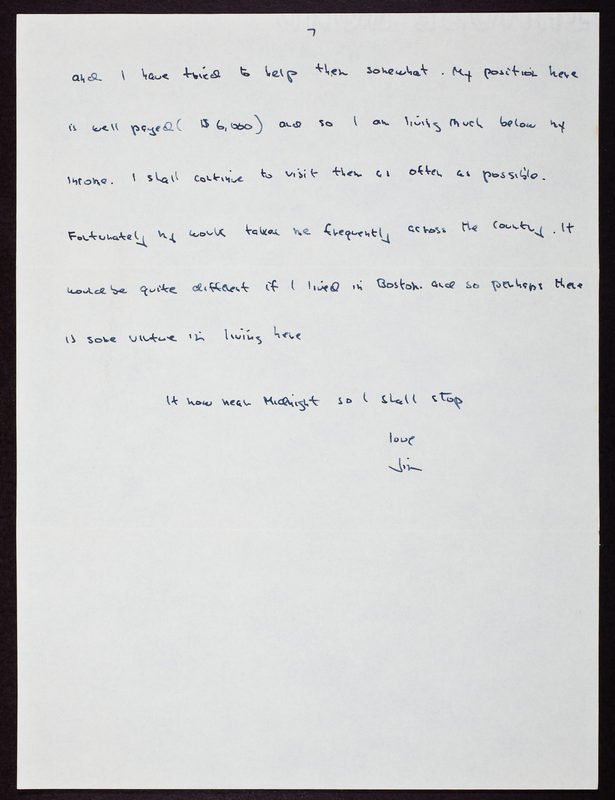 7
and I have tried to help them somewhat. My position here
is well payed ($ 6,000) and so I am living much below my
income. I shall continue to visit them as often as possible.
Fortunately my work takes me frequently across the country. It
would be quite different if I lived in Boston. and so perhaps there
is some virtue in living here
It now near Midnight so I shall stop
love
Jim